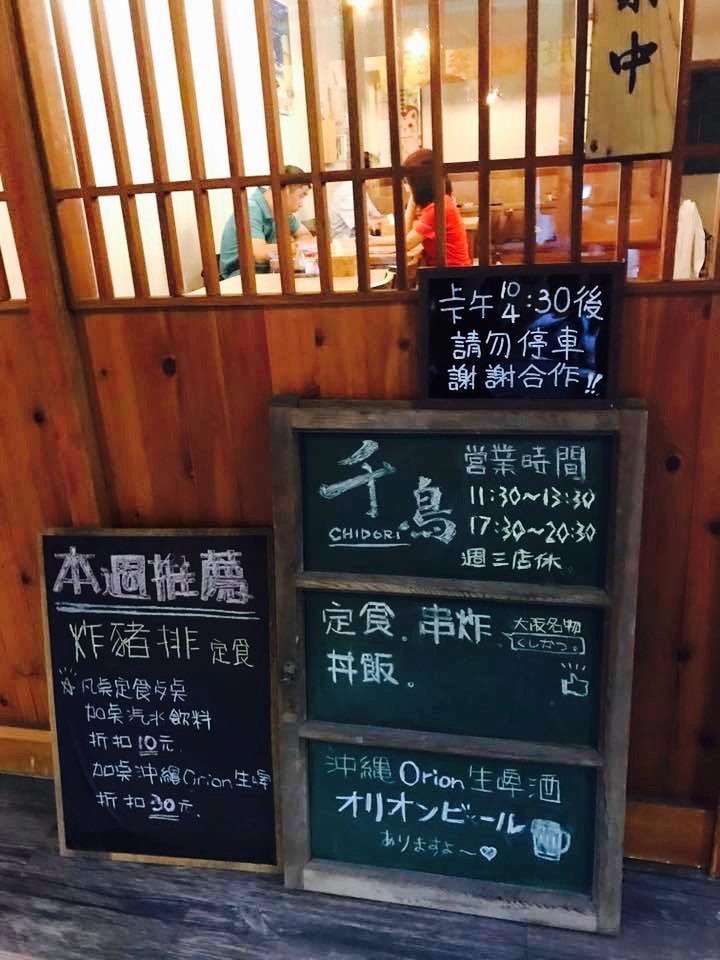 中
上
下午 10
4 :30後
請勿停車
謝謝合作!!
千鳥
CHIDORI
營業時間
11:30~13:30
17:30~20:30
週三店休.
定食. 串炸
丼飯.
大阪名物
くしかつ。
沖縄 Orion 生啤酒
オリオンビール
ありますよ~♥
本週推薦
炸豬排 定食
☆ 凡桌定食歺桌
加桌汽水飲料
折扣10元.
加桌沖縄Orion生啤
折扣30元.